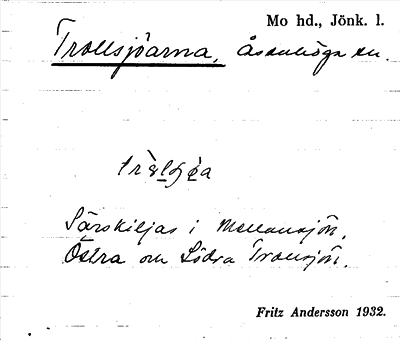 Mo hd., Jönk. l.
Trollsjöarna, Åsenhöga sn.
Särskiljas i Mellansjön,
Östra och Södra Trollsjön.
Fritz Andersson 1932.